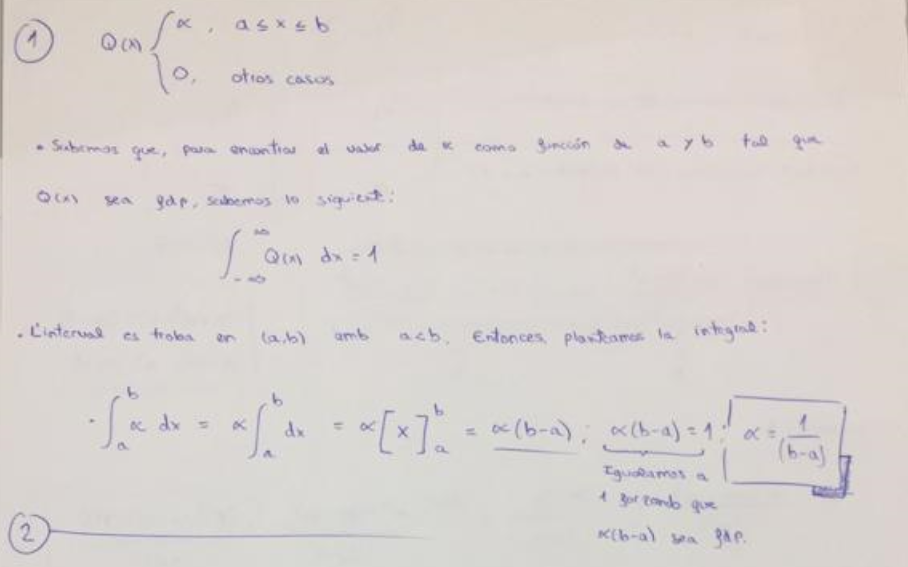 1
Q(x) { α, a ≤ x ≤ b
0, otros casos
• Sabemos que, para encontrar el valor de α como función de a y b tal que
Q(x) sea fdp, sabemos lo siguiente:
∫_{-∞}^{∞} Q(x) dx = 1
• L'interval es troba en (a,b) amb a<b. Entonces, planteamos la integral:
• ∫_a^b α dx = α ∫_a^b dx = α [x]_a^b = α(b-a) ; α(b-a) = 1 ; α = 1/(b-a)
Igualamos a
1 forzando que
α(b-a) sea fdp.
2